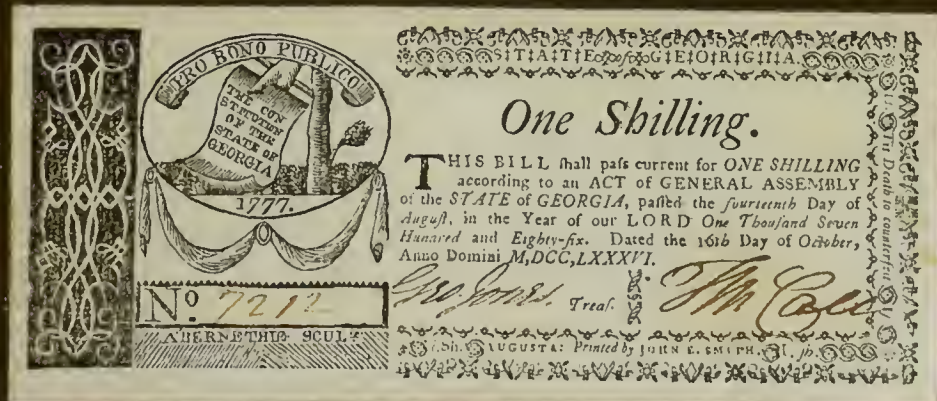 PRO BONO PUBLICO
THE CON
STITUTION
OF THE
STATE OF
GEORGIA
1777.
No 7212
ABERNETHIE SCULPt
STATE of GEORGIA.
One Shilling.
THIS BILL ſhall paſs current for ONE SHILLING
according to an ACT of GENERAL ASSEMBLY
of the STATE of GEORGIA, paſſed the fourteenth Day of
Auguſt, in the Year of our LORD One Thouſand Seven
Hundred and Eighty-ſix. Dated the 16th Day of October,
Anno Domini M,DCC,LXXXVI.
Geo. Jones. Treaſ.
1.ſh. AUGUSTA: Printed by JOHN E. SMITH. 1.ſh.
'Tis Death to counterfeit